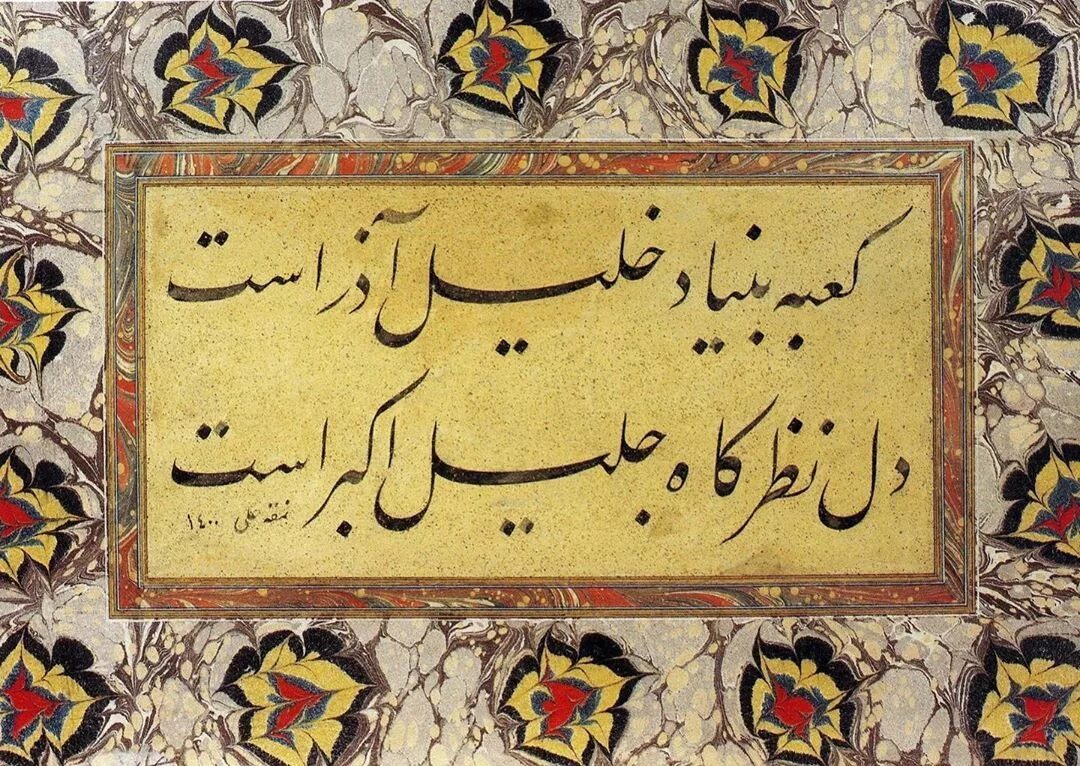 کعبه بنیاد خلیل آذر است
دل نظرکاه جلیل اکبر است
نمقه علی ١٤٠٠